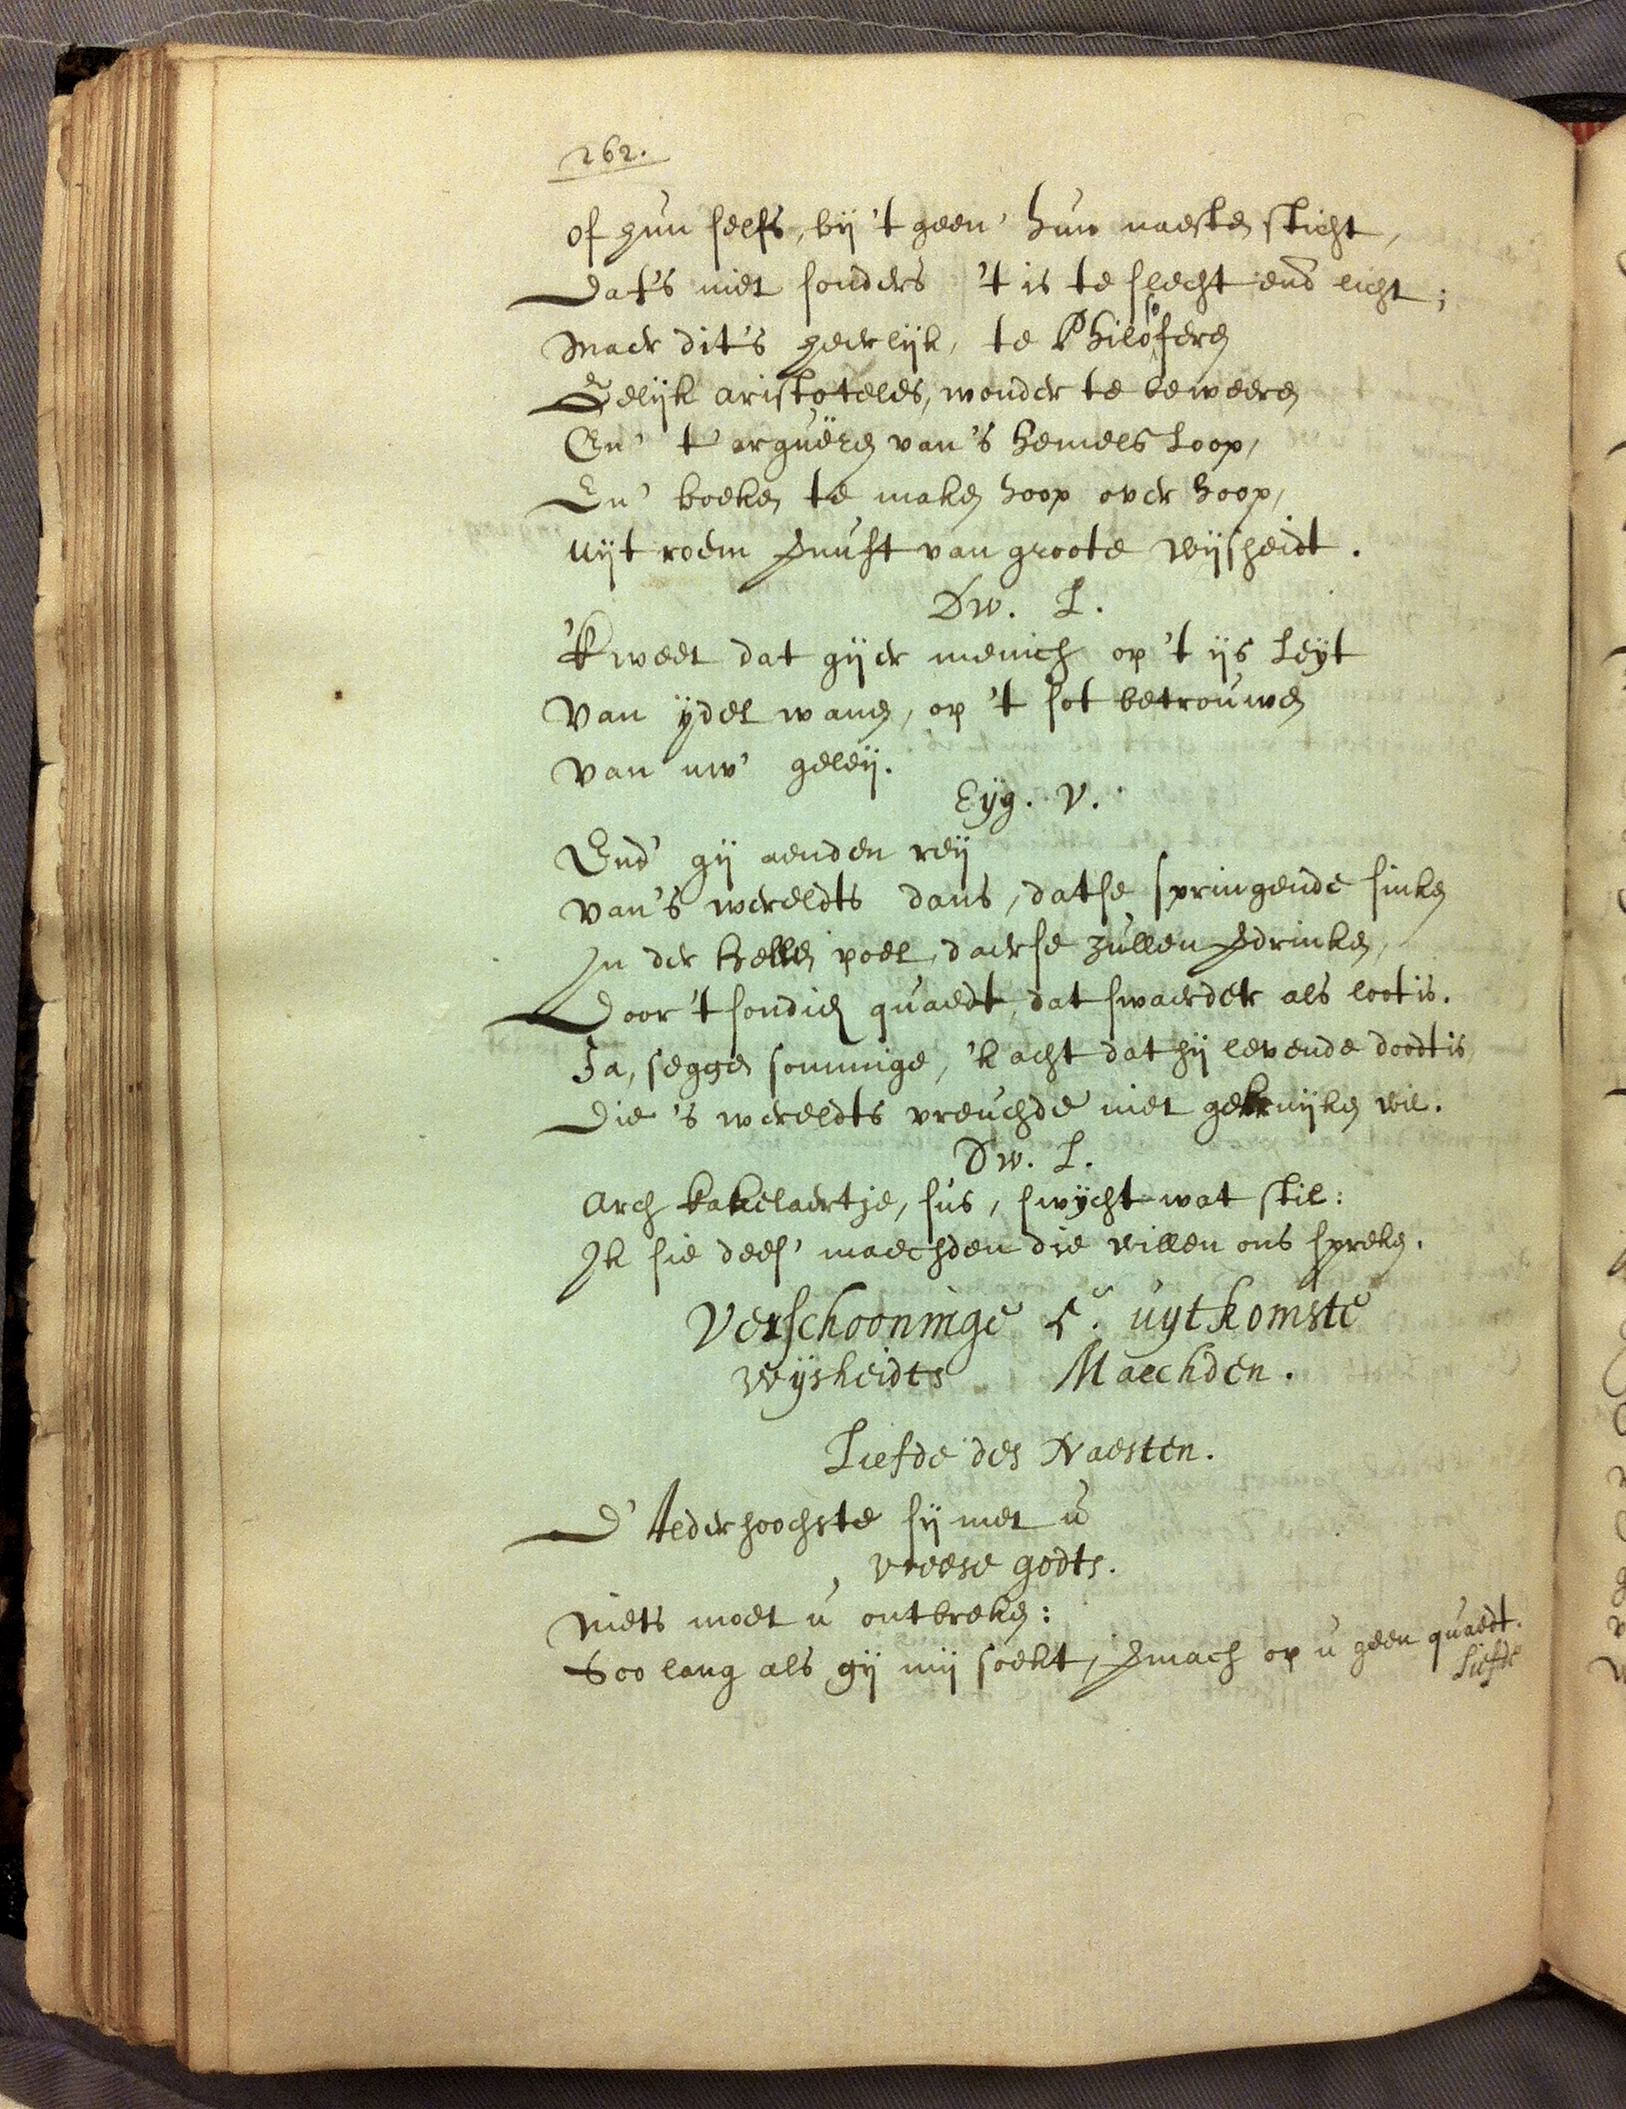 262.
of hun selfs, bij 't geen' hun naesten sticht,
Dat's niet sonders 't is te slecht end licht;
Maer dit's heerlijk, te Philosoferen
Gelijk aristoteles, wonder te beweeren
En' t' arguëren van 's hemels loop,
En' boeken te maken hoop over hoop,
uijt roem vernuft van groote wijsheidt.
Dw. L.
'K weet dat gijer menich op 't ijs leyt
Van ydel waen, op 't sot betrouwen
van uw' geleij.
Eyg. V.
End' gij aenden reij
van 's wereldts dans, datse springende sinken
In der hellen poel, daerse zullen verdrinken,
Door 't sondich quaedt, dat swaerder als lootis.
Ja, seggen sommige, 'k acht dat hij levende doodt is
Die 's wereldts vreuchde niet gebruijken wil.
Dw. L.
Arch kakelaertje, sus, swycht wat stil:
Ik sie dees' maechden die willen ons spreken.
Verschooninge 5e. uytkomste
Wysheidts Maechden.
Liefde des Naesten.
D' Alderhoochste sij met u
Vreese godts.
Niets moet u ontbreken:
Soo lang als gij mij soekt, vermach op u geen quaedt.
Liefde